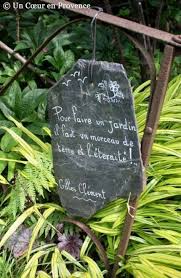 © Un Cœur en Provence
Pour faire un jardin,
il faut un morceau de
terre et l'éternité !
Gilles Clément